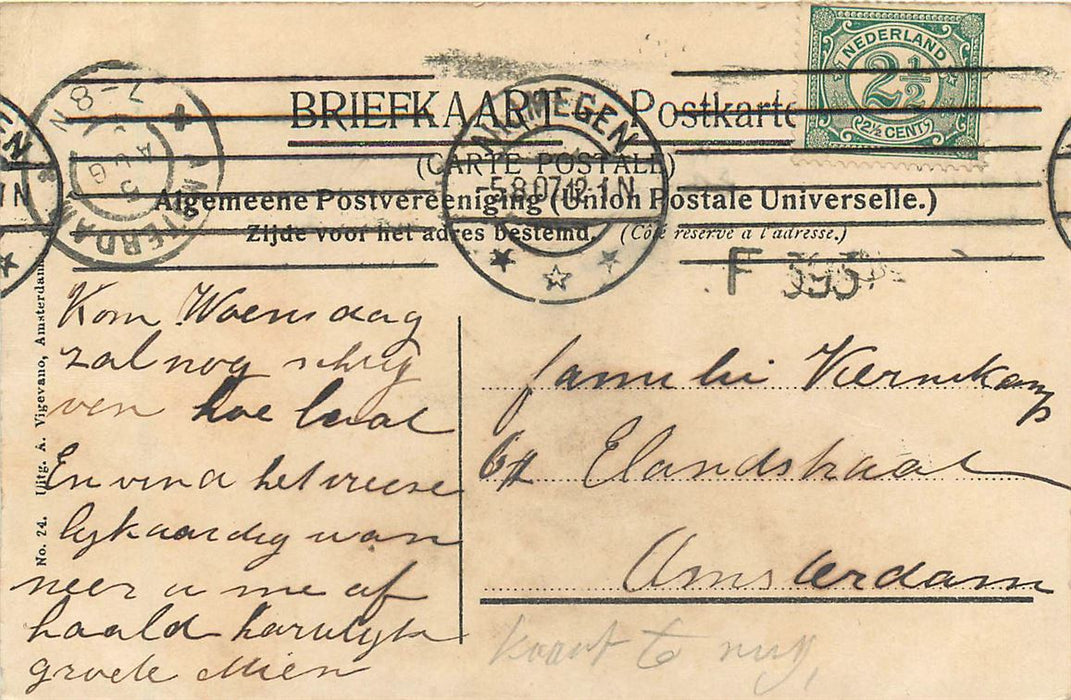 NEDERLAND
2½
2½ CENT
BRIEFKAART Postkarte
(CARTE POSTALE)
Algemeene Postvereeniging (Union Postale Universelle.)
Zijde voor het adres bestemd. (Côté réservé à l'adresse.)
NIJMEGEN
5.8.07.12-1N
AMSTERDAM
7-8N
5
AUG
F
No. 24. Uitg. A. Vigevano, Amsterdam
Kom Woensdag
zal nog schrij
ven hoe laat
En vind het vreese
lyk aardig wan
neer u me af
haald hartelyk
groete Mien
familie Kernkamp
Elandstraat
Amsterdam